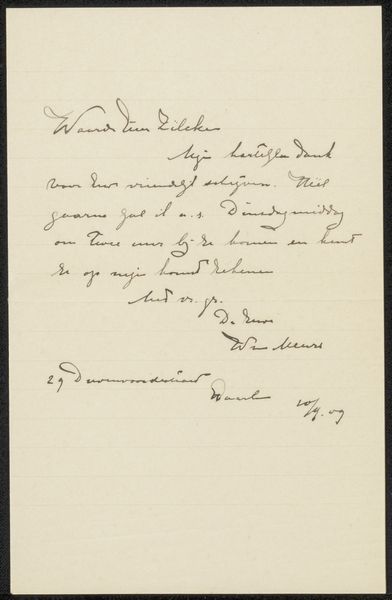 Waarde Heer Zilcken
Mijn hartelijken dank
voor Uw vriendelijk schrijven. Heel
gaarne zal ik a.s. Dinsdagmiddag
om Twee uur bij U komen en kunt
U op mijn komst rekenen
Met vr. gr.
D. Uwe
Wm Meurs
29
10/9.09